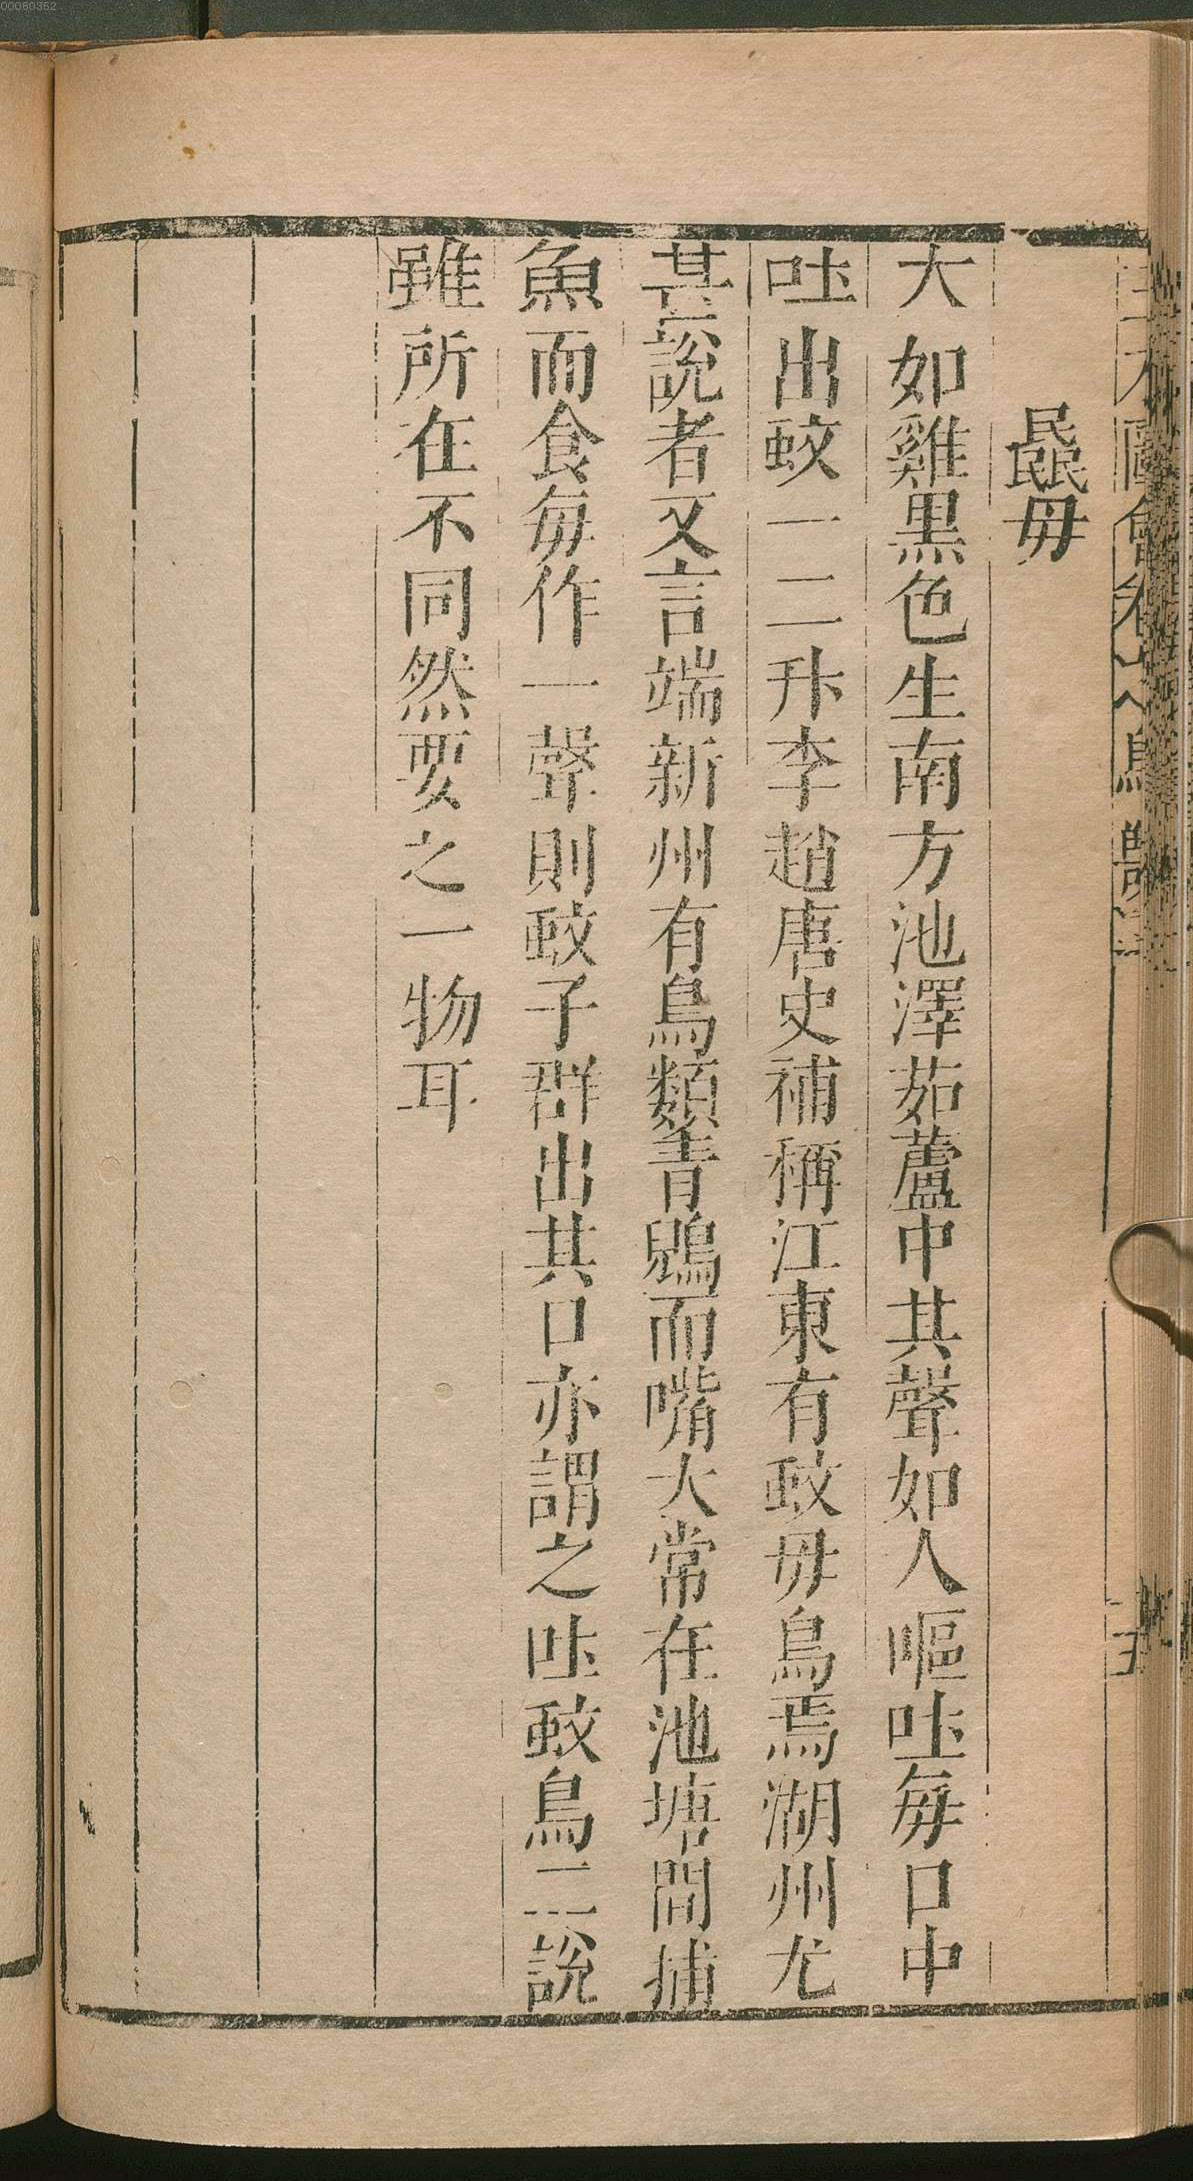 00060352
䖟母
大如雞黒色生南方池澤茹蘆中其聲如人嘔吐每口中
吐出蚊一二升李趙唐史補稱江東有蚊母鳥焉湖州尤
甚說者又言端新州有鳥類青鶂而嘴大常在池塘間捕
魚而食每作一聲則蚊子群出其口亦謂之吐蚊鳥二說
雖所在不同然要之一物耳